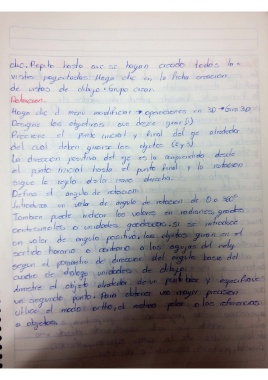 clic. Repita hasta que se hayan creado todas las
vistas proyectadas. Haga clic en la ficha creacion
de vistas de dibujo. Grupo crear.
Rotacion.
Haga clic el menú modificar → operaciones en 3D → Giro 3D
Designe los objetivos que desee girar (1)
Precise el punto inicial y final del eje alrededor
del cual deben girarse los objetos (2 y 3)
La dirección positiva del eje es la comprendida desde
el punto inicial hasta el punto final y la rotacion
sigue la regla de la mano derecha.
Defina el angulo de rotacion
Introduzca un valor de angulo de rotacion de 0 a 360°
Tambien puede indicar los valores en radianes, grados
centesimales o unidades geodesicas, si se introduce
un valor de angulo positivo, los objetos giran en el
sentido horario o contrario a las agujas del reloj
segun el parametro de direccion del angulo base del
cuadro de dialogo unidades de dibujo.
Arrastre el objeto alrededor de un punto base y especifique
un segundo punto. Para obtener una mayor precision
utilice el modo ortho, el rastreo polar o las referencias
a objetos.